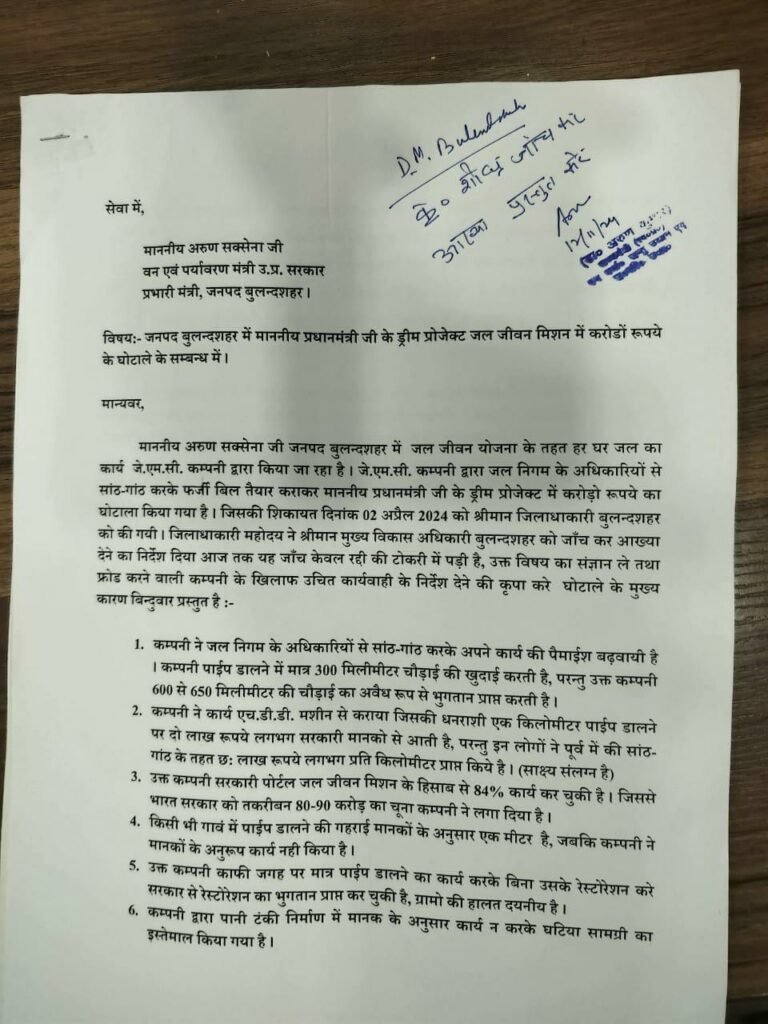 D.M. Bulandshahr
कृ० शीघ्र जांच कर
आख्या प्रस्तुत करें
12/11/24
(डा० अरुण कुमार)
सेवा में,
माननीय अरुण सक्सेना जी
वन एवं पर्यावरण मंत्री उ.प्र. सरकार
प्रभारी मंत्री, जनपद बुलन्दशहर।
विषय:- जनपद बुलन्दशहर में माननीय प्रधानमंत्री जी के ड्रीम प्रोजेक्ट जल जीवन मिशन में करोडों रूपये
के घोटाले के सम्बन्ध में।
मान्यवर,
माननीय अरुण सक्सेना जी जनपद बुलन्दशहर में जल जीवन योजना के तहत हर घर जल का
कार्य जे.एम.सी. कम्पनी द्वारा किया जा रहा है। जे.एम.सी. कम्पनी द्वारा जल निगम के अधिकारियों से
सांठ-गांठ करके फर्जी बिल तैयार कराकर माननीय प्रधानमंत्री जी के ड्रीम प्रोजेक्ट में करोड़ो रूपये का
घोटाला किया गया है। जिसकी शिकायत दिनांक 02 अप्रैल 2024 को श्रीमान जिलाधाकारी बुलन्दशहर
को की गयी। जिलाधाकारी महोदय ने श्रीमान मुख्य विकास अधिकारी बुलन्दशहर को जाँच कर आख्या
देने का निर्देश दिया आज तक यह जाँच केवल रद्दी की टोकरी में पड़ी है, उक्त विषय का संज्ञान ले तथा
फ्रोड करने वाली कम्पनी के खिलाफ उचित कार्यवाही के निर्देश देने की कृपा करे घोटाले के मुख्य
कारण बिन्दुवार प्रस्तुत है :-
1. कम्पनी ने जल निगम के अधिकारियों से सांठ-गांठ करके अपने कार्य की पैमाईश बढ़वायी है
। कम्पनी पाईप डालने में मात्र 300 मिलीमीटर चौड़ाई की खुदाई करती है, परन्तु उक्त कम्पनी
600 से 650 मिलीमीटर की चौड़ाई का अवैध रूप से भुगतान प्राप्त करती है।
2. कम्पनी ने कार्य एच.डी.डी. मशीन से कराया जिसकी धनराशी एक किलोमीटर पाईप डालने
पर दो लाख रूपये लगभग सरकारी मानको से आती है, परन्तु इन लोगों ने पूर्व में की सांठ-
गांठ के तहत छ: लाख रूपये लगभग प्रति किलोमीटर प्राप्त किये है। (साक्ष्य संलग्न है)
3. उक्त कम्पनी सरकारी पोर्टल जल जीवन मिशन के हिसाब से 84% कार्य कर चुकी है। जिससे
भारत सरकार को तकरीबन 80-90 करोड़ का चूना कम्पनी ने लगा दिया है।
4. किसी भी गावं में पाईप डालने की गहराई मानकों के अनुसार एक मीटर है, जबकि कम्पनी ने
मानकों के अनुरूप कार्य नही किया है।
5. उक्त कम्पनी काफी जगह पर मात्र पाईप डालने का कार्य करके बिना उसके रेस्टोरेशन करे
सरकार से रेस्टोरेशन का भुगतान प्राप्त कर चुकी है, ग्रामो की हालत दयनीय है।
6. कम्पनी द्वारा पानी टंकी निर्माण में मानक के अनुसार कार्य न करके घटिया सामग्री का
इस्तेमाल किया गया है।